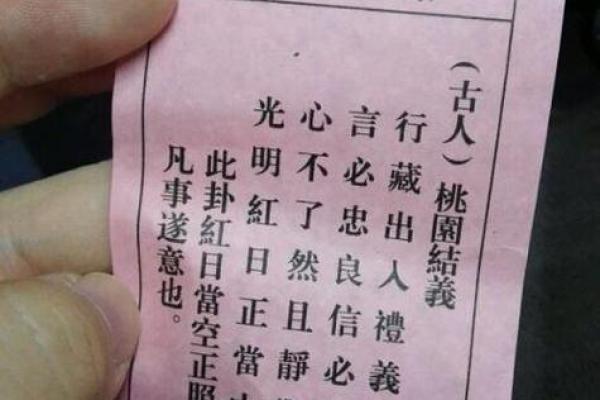 （古人）桃園結義
行藏出入禮義
言必忠良信必
心不了然且靜
光明紅日正當
此卦紅日當空正照
凡事遂意也。